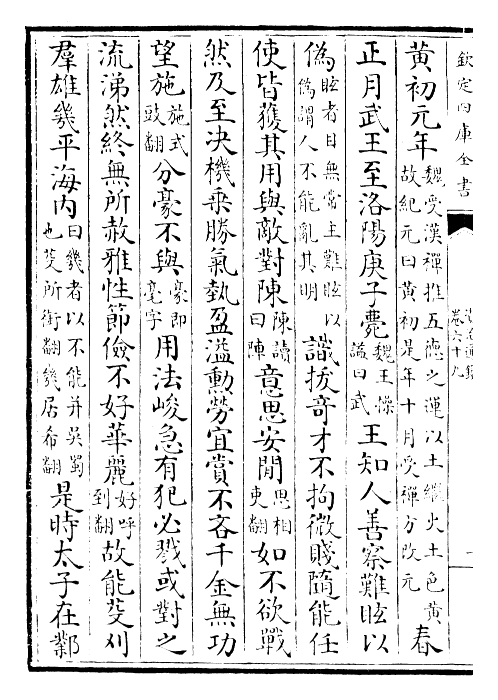 欽定四庫全書
卷六十九
一
黄初元年魏受漢禪推五德之運以土繼火土色黄故紀元曰黄初是年十月受禪方改元春
正月武王至洛陽庚子薨魏王操諡曰武王知人善察難眩以
偽眩者目無常主難眩以偽謂人不能亂其明識拔奇才不拘微賤隨能任
使皆獲其用與敵對陳陳讀曰陣意思安閒思相吏翻如不欲戰
然及至决機乘勝氣埶盈溢勲勞宜賞不吝千金無功
望施施式豉翻分豪不與豪即毫字用法峻急有犯必戮或對之
流涕然終無所赦雅性節儉不好華麗好呼到翻故能芟刈
羣雄幾平海内曰幾者以不能并吳蜀也芟所銜翻幾居希翻是時太子在鄴